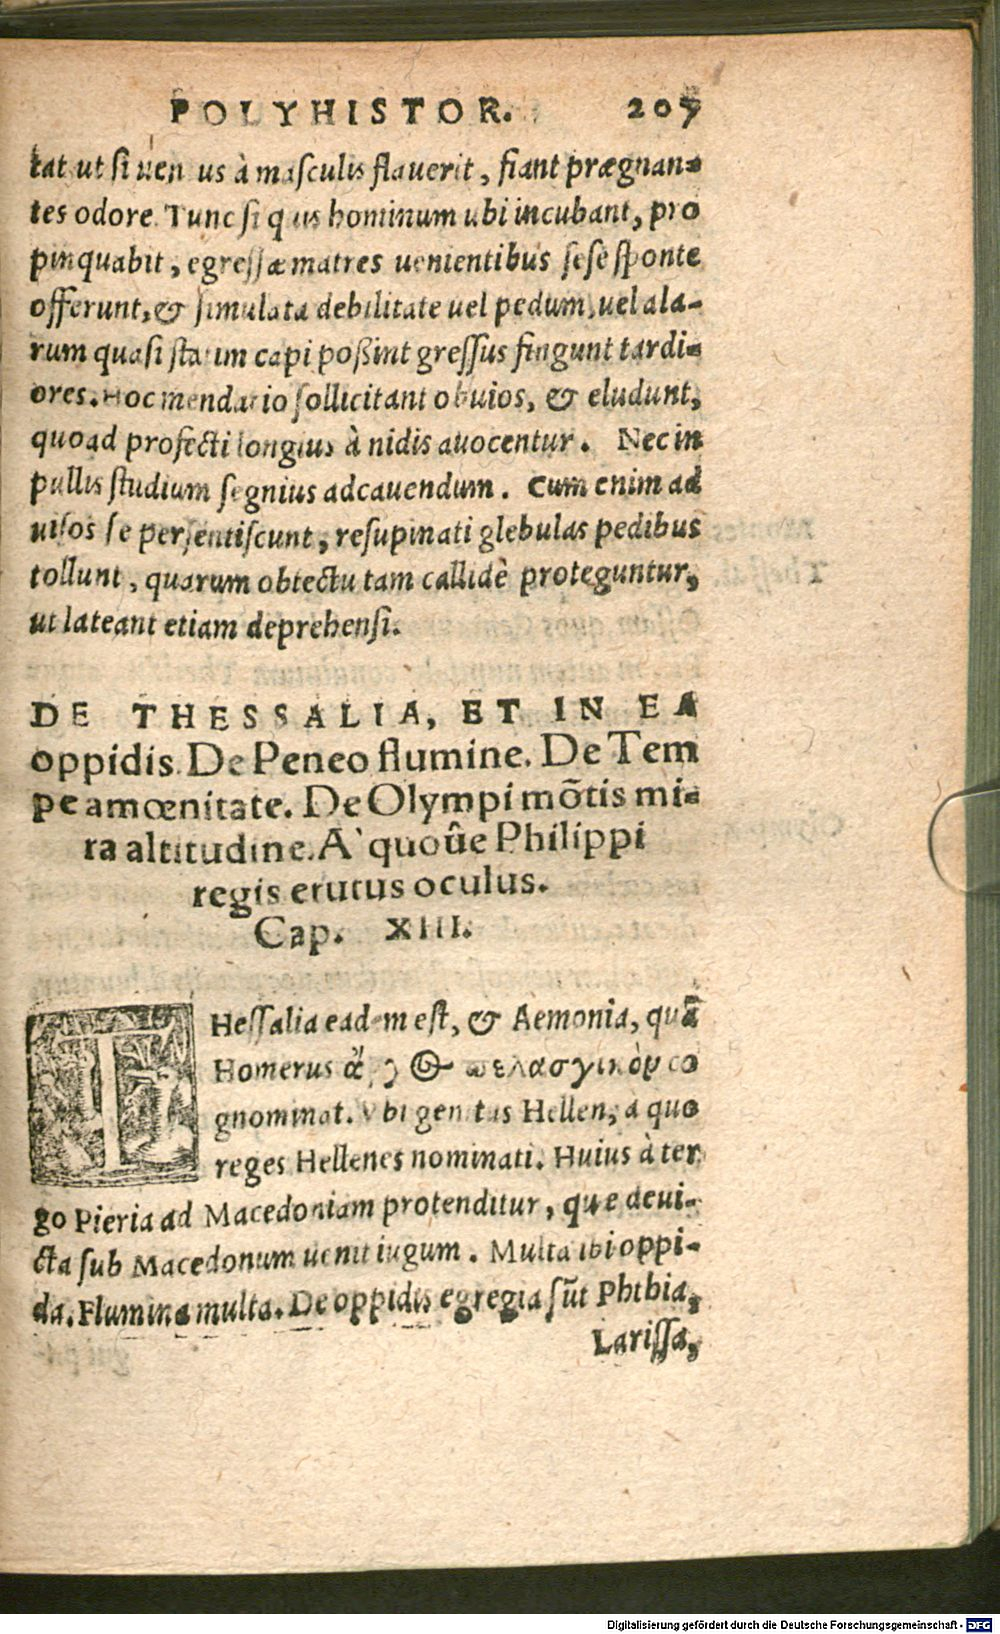 POLYHISTOR. 207
tat ut si uen us à masculis flauerit, fiant prægnan-
tes odore. Tunc si q us hominum ubi incubant, pro
pinquabit, egressæ matres uenientibus sese sponte
offerunt, & simulata debilitate uel pedum, uel ala-
rum quasi statim capi poßint gressus fingunt tardi-
ores. Hoc mendacio sollicitant obuios, & eludunt,
quoad profecti longius à nidis auocentur. Nec in
pullis studium segnius adcauendum. Cum enim ad
uisos se persentiscunt, resupinati glebulas pedibus
tollunt, quarum obtectu tam callidè proteguntur,
ut lateant etiam deprehensi.
DE THESSALIA, ET IN EA
oppidis. De Peneo flumine. De Tem
pe amœnitate. De Olympi mõtis mi-
ra altitudine. A` quoûe Philippi
regis erutus oculus.
Cap. XIII.
THessalia eadem est, & Aemonia, quã
Homerus πελασγικὸν co
gnominat. Vbi genitus Hellen, a quo
reges Hellenes nominati. Huius à ter
go Pieria ad Macedoniam protenditur, que deui-
cta sub Macedonum uenit iugum. Multa ibi oppi-
da. Flumina multa. De oppidis egregia sũt Phthia,
Larissa,
Digitalisierung gefördert durch die Deutsche Forschungsgemeinschaft - DFG